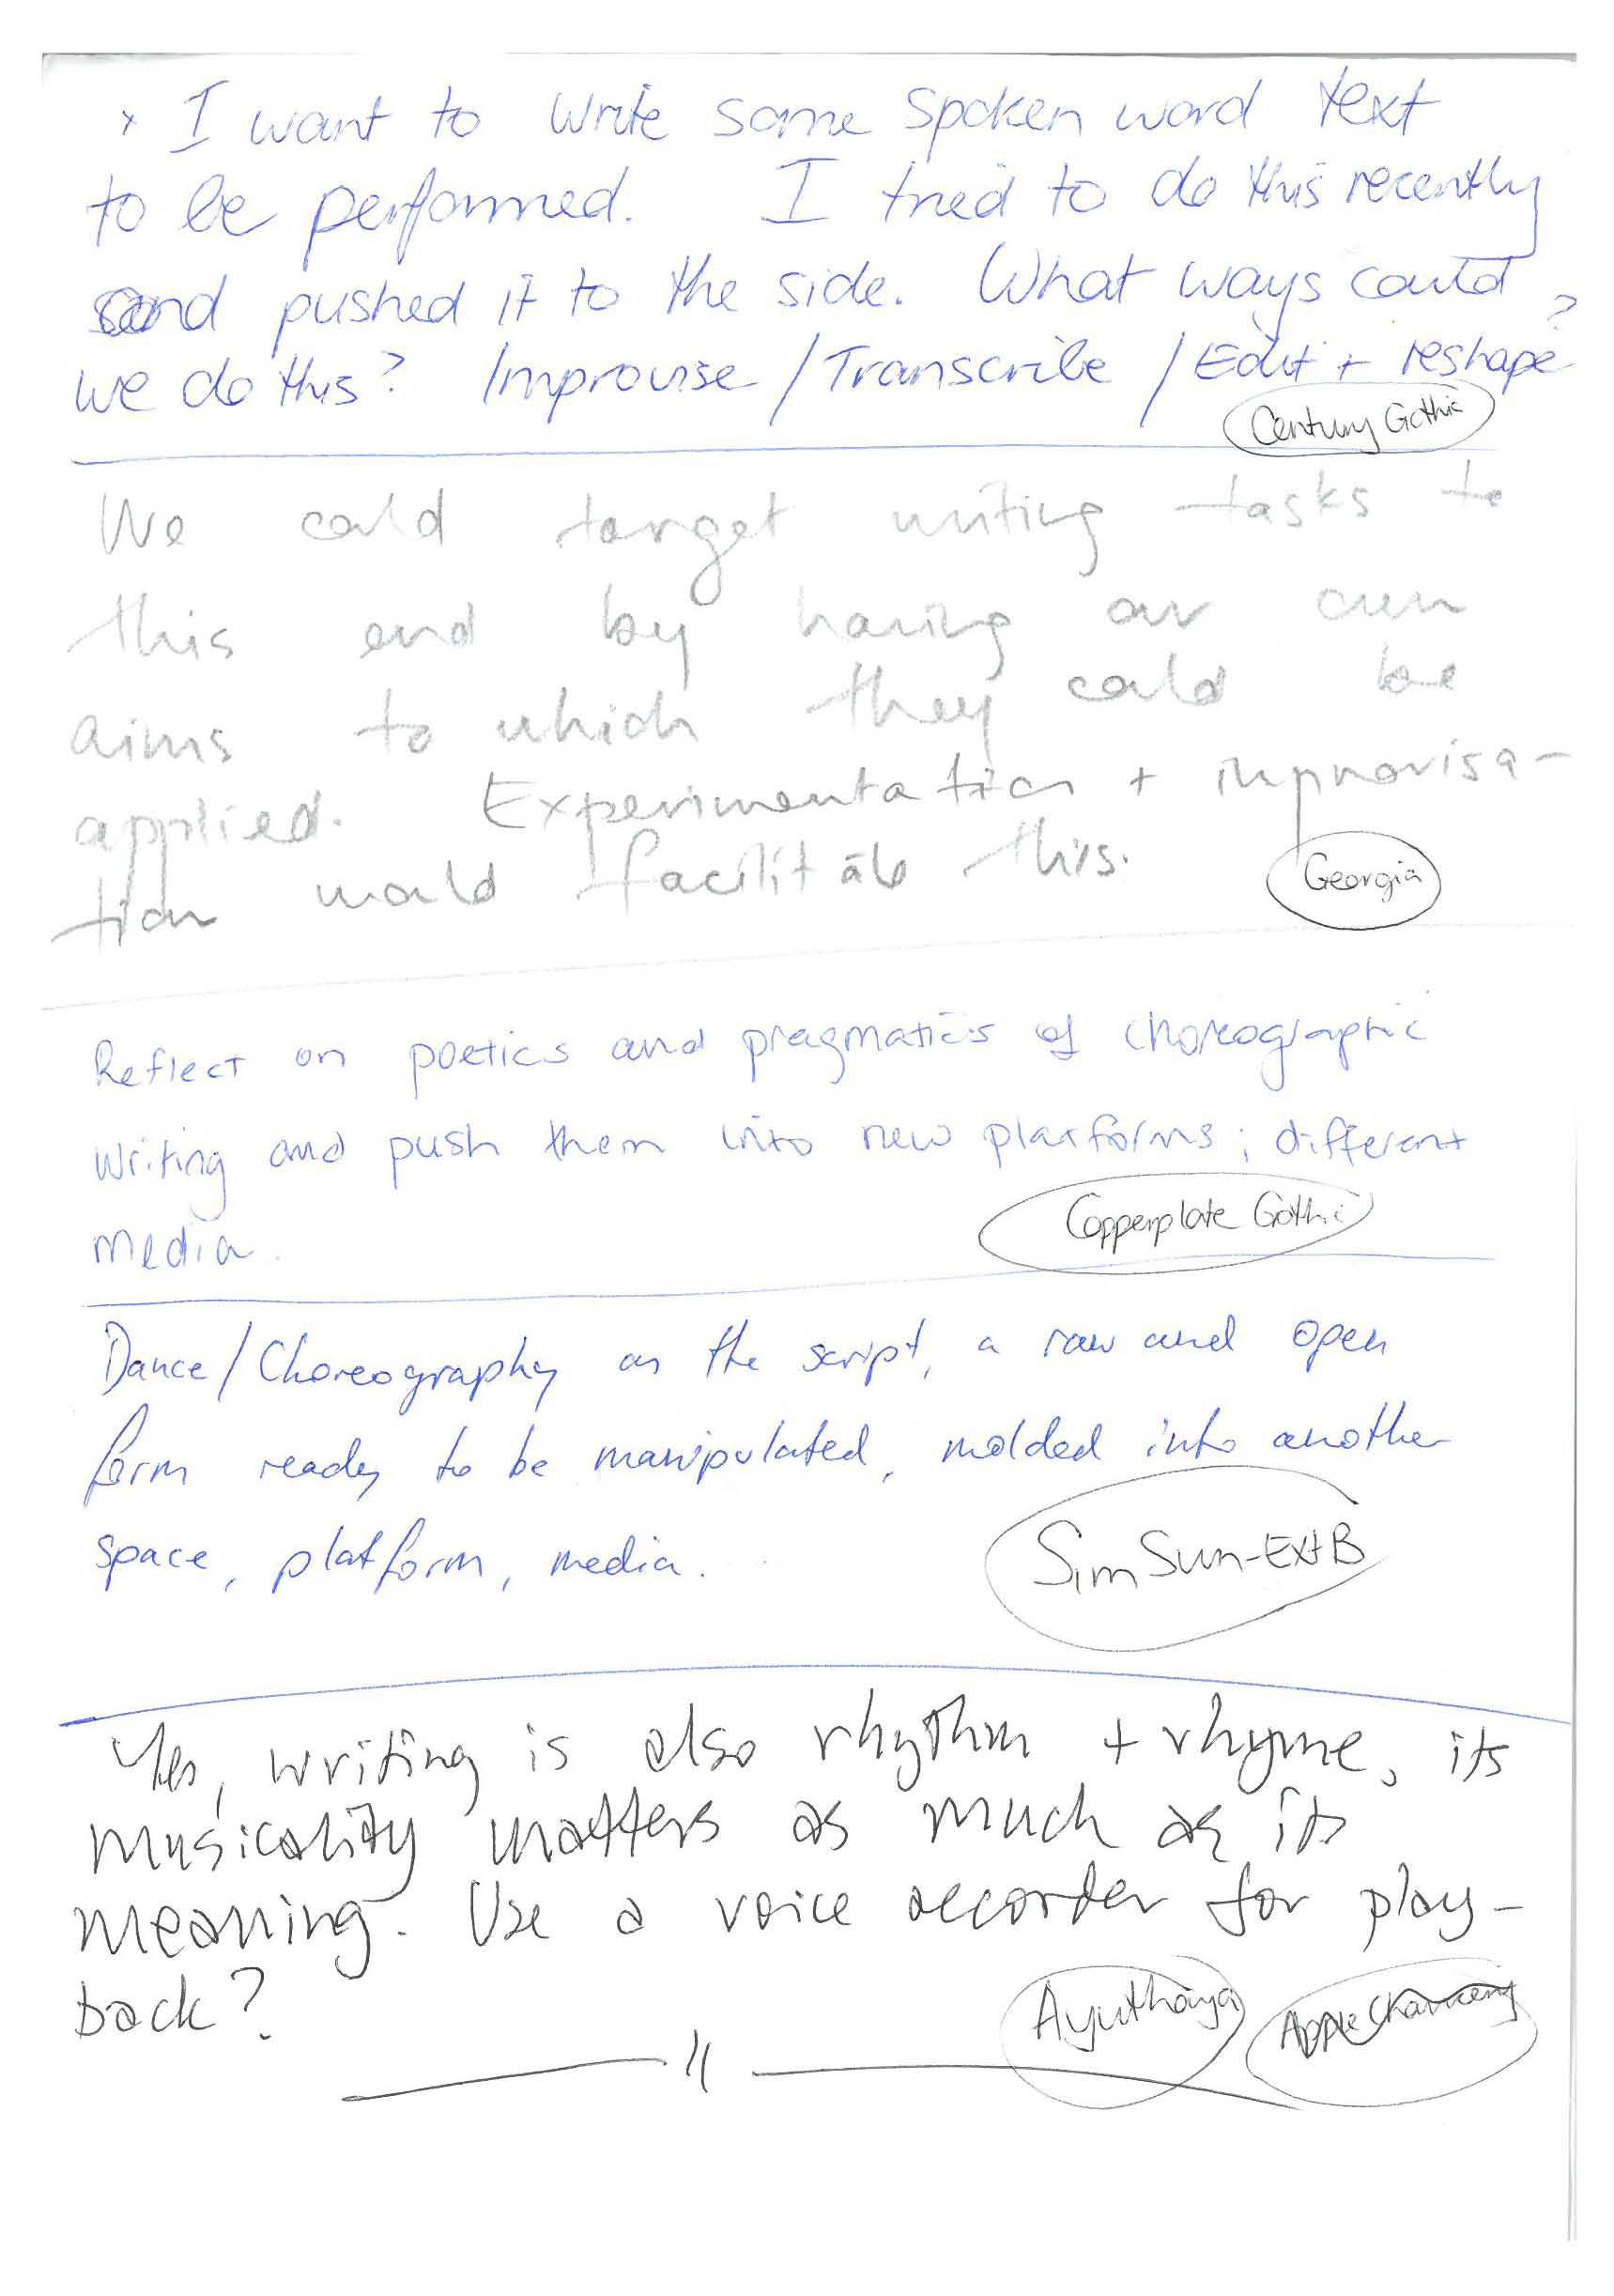 x I want to write some spoken word text
to be performed. I tried to do this recently
and pushed it to the side. What ways could
we do this? Improvise / Transcribe / Edit + reshape?
Century Gothic
We could target writing tasks to
this end by having our own
aims to which they could be
applied. Experimentation + improvisa-
tion would facilitate this.
Georgia
Reflect on poetics and pragmatics of choreographic
writing and push them into new platforms; different
media.
Copperplate Gothic
Dance/Choreography as the script, a raw and open
form ready to be manipulated, molded into another
space, platform, media.
SimSun-ExtB
Yes, writing is also rhythm + rhyme, its
musicality matters as much as its
meaning. Use a voice recorder for play-
back?
Ayuthaya Apple Chancery